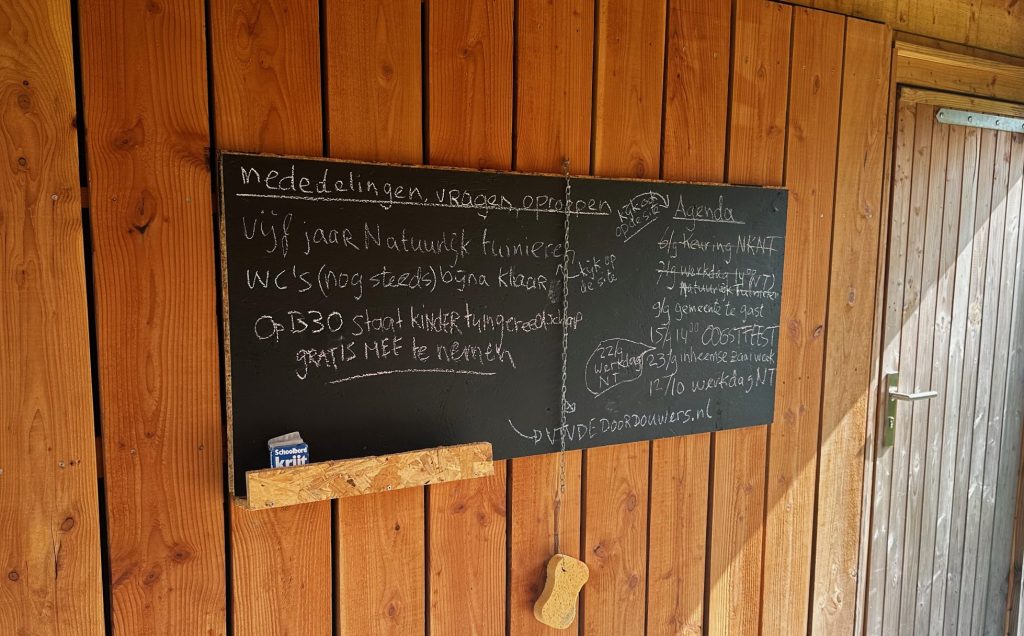 mededelingen, vragen, oproepen
vijf jaar Natuurlijk tuinieren
WC's (nog steeds) bijna klaar
kijk op
de site
Op B30 staat KINDER tuingereedschap
GRATIS MEE te nemen
kijk ook
op de site
Agenda
6/9 keuring NKNT
7/9 werkdag
NT)
Natuurlijk Tuinieren
9/9 gemeente te gast
15/9 14:00 OOGSTFEEST
22/9
werkdag
NT
23/9 inheemse zaai week
12/10 werkdag NT
DVVDEDOORDOUWERS.nl
Schoolbord
krijt